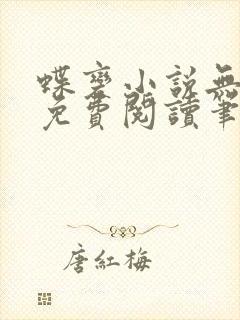 蝶變小說無
免費閱讀筆
唐紅梅